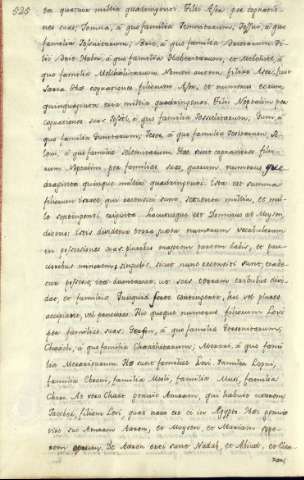 525
ta quatuor millia quadringenti. Filii Aser per cognatio-
nes suas, Jemna, à quo familia Jemnaitarum, Jessui, à quo
familia Jessuitarum, Brie, à quo familia Brieitarum. Fi-
lii Brie: Heber, à quo familia Heberitarum, et Melchiel, à
quo familia Melchielitarum. Nomen autem filiæ Aser, fuit
Sara. Hæ cognationes filiorum Aser, et numerus eorum,
quinquaginta tria millia quadringenti. Filii Nephtalim per
cognationes suas, Jesiel, à quo familia Jesielitarum, Guni, à
quo familia Gunitarum, Jeser, à quo familia Jeseritarum, Sel-
lem, à quo familia Sellemitarum. Hæ sunt cognationes filio-
rum Nephtalim per familias suas, quorum numerus qua-
draginta quinque millia quadringenti. Ista est summa
filiorum Israel, qui recensiti sunt, sexcenta millia, et mil-
le septingenti triginta. Locutusque est Dominus ad Moysen,
dicens: Istis dividetur terra juxta numerum vocabulorum
in possessiones suas. Pluribus majorem partem dabis, et pau-
cioribus minorem, singulis, sicut nunc recensiti sunt, trade-
tur possessio, ita duntaxat ut sors terram tribubus divi-
dat, et familiis. Quidquid sorte contigerit, hoc vel plures
accipiant, vel pauciores. Hic quoque numerus filiorum Levi
per familias suas. Gerson, à quo familia Gersonitarum,
Chaath, à quo familia Chaathitarum, Merari, à quo fami-
lia Meraritarum. Hæ sunt familiæ Levi. Familia Lobni,
familia Hebroni, familia Moholi, familia Musi, familia
Chore. At vero Chaat genuit Amram, qui habuit uxorem,
Jochabed, filiam Levi, quæ nata est ei in Ægypto. Hæc genuit
viro suo Amram Aaron, et Moysen, et Mariam soro-
rem eorum. De Aaron orti sunt Nadab, et Abiud, et Elea-
zar,